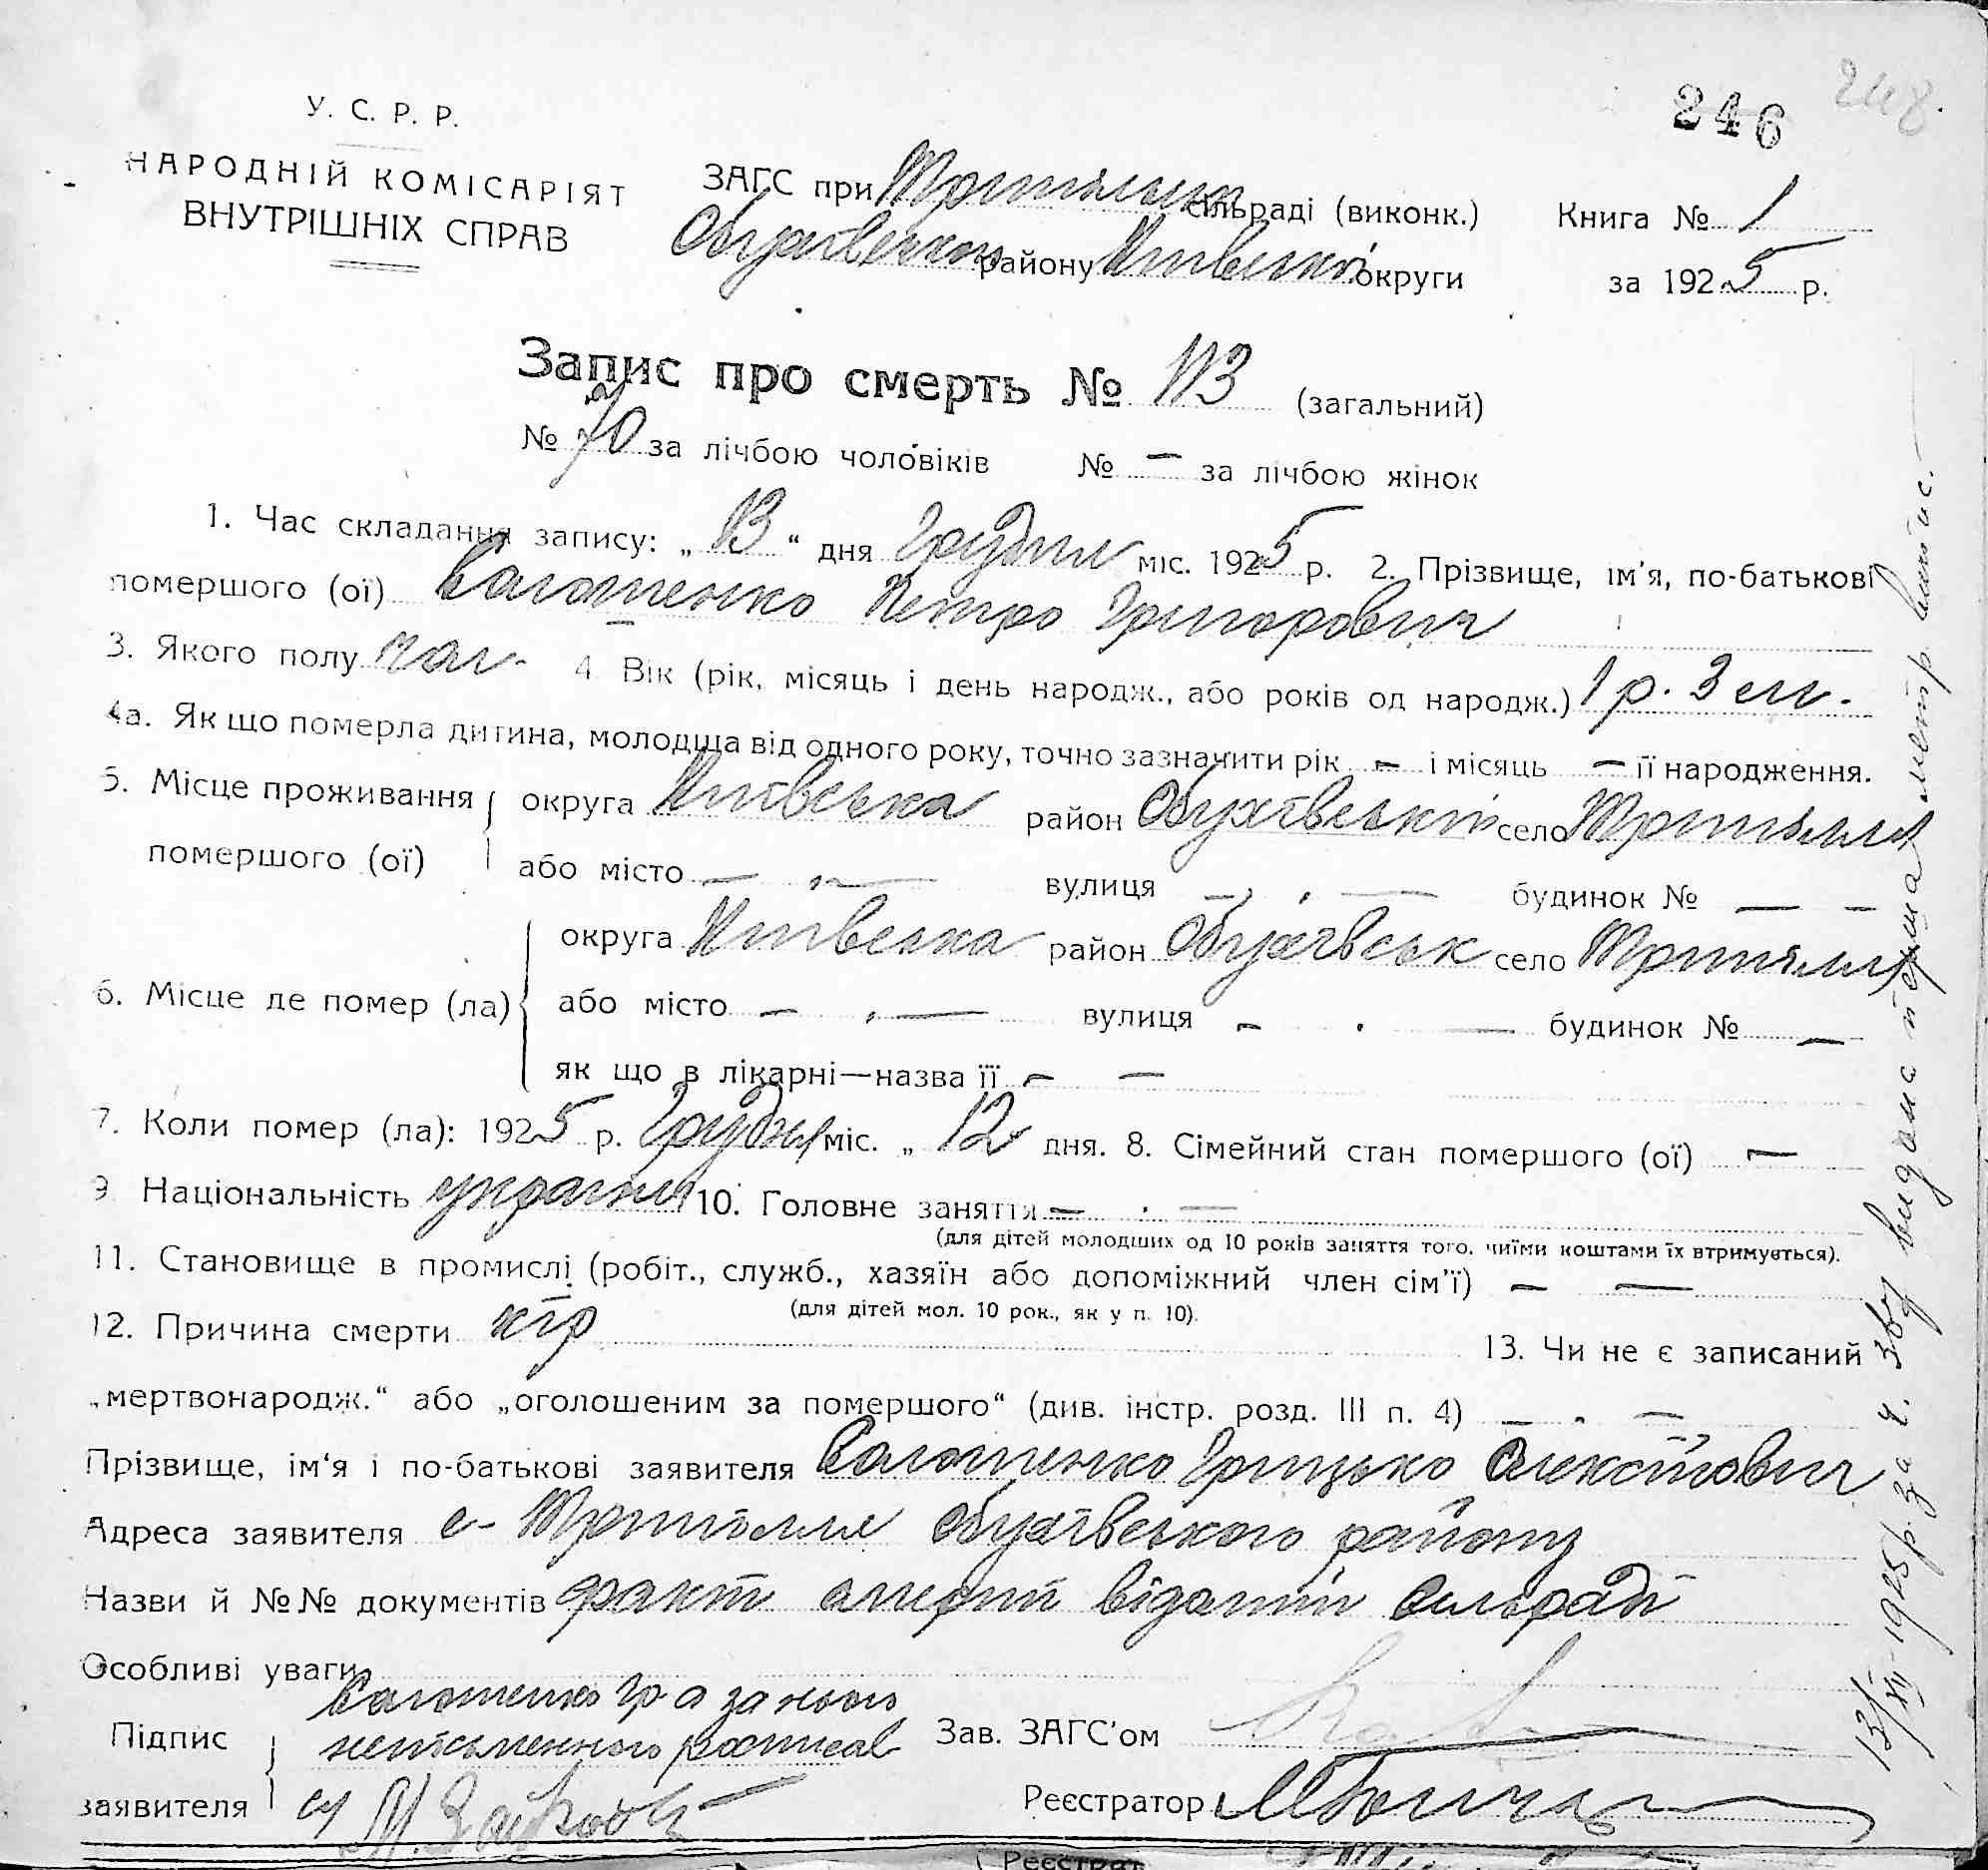 246
248.
У. С. Р. Р.
НАРОДНІЙ КОМІСАРІЯТ
ВНУТРІШНІХ СПРАВ
ЗАГС при Трипільськ сільраді (виконк.)
Обухівського району Київської округи
Книга № 1
за 1925 р.
Запис про смерть № 113 (загальний)
№ 70 за лічбою чоловіків № — за лічбою жінок
1. Час складання запису: „ 13 “ дня Грудня міс. 1925 р. 2. Прізвище, ім'я, по-батькові
помершого (ої) Салотенко Петро Григорович
3. Якого полу чол. 4 Вік (рік, місяць і день народж., або років од народж.) 1 р. 3 м.
4а. Як що померла дитина, молодша від одного року, точно зазначити рік — і місяць — її народження.
5. Місце проживання округа Київська район Обухівський село Трипілля
помершого (ої) або місто — вулиця — будинок № — —
округа Київська район Обухівськ село Трипілля
6. Місце де помер (ла) або місто — вулиця — — будинок № —
як що в лікарні—назва її — —
7. Коли помер (ла): 1925 р. Грудня міс. „ 12 дня. 8. Сімейний стан помершого (ої) —
9 Національність україн 10. Головне заняття — · —
(для дітей молодших од 10 років заняття того, чиїми коштами їх втримується).
11. Становище в промислі (робіт., служб., хазяїн або допоміжний член сім'ї) — —
(для дітей мол. 10 рок., як у п. 10).
12. Причина смерти кір 13. Чи не є записаний
„мертвонародж.“ або „оголошеним за помершого“ (див. інстр. розд. III п. 4) — · —
Прізвище, ім'я і по-батькові заявителя Салотенко Грицько
Адреса заявителя с- Трипілля Обухівського району
Назви й №№ документів факт смерти відомий Сельраді
Особливі уваги
Підпис заявителя Салотенко Гр. а за нього
неписьменного росписався
Зав. ЗАГС'ом
Реєстратор
13/XII-1925 р. за ч. видана метр. випис.
Реєстрат